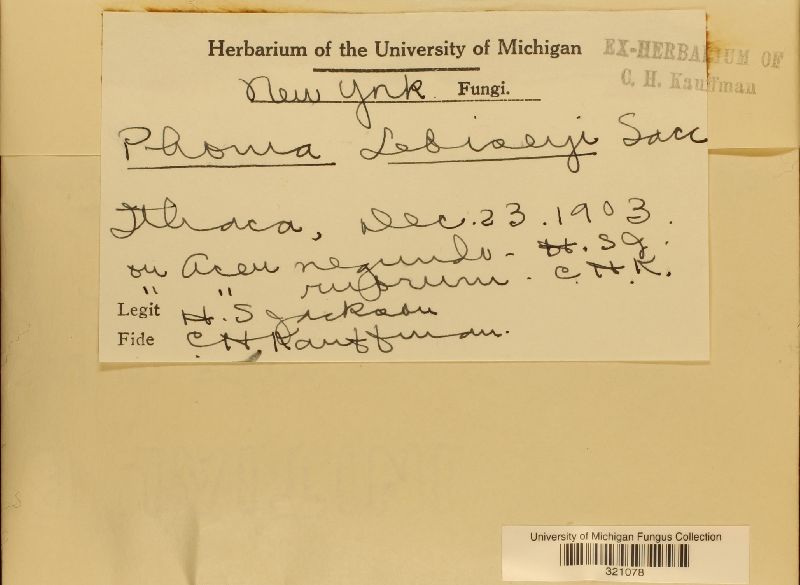 Herbarium of the University of Michigan
EX-HERBARIUM OF
C. H. Kauffman
New York Fungi.
Phoma Lebiseyi Sacc
Ithaca, Dec. 23. 1903.
on Acer negundo - H. S J.
" " rubrum - C. H. K.
Legit H. S Jackson
Fide C H. Kauffman.
University of Michigan Fungus Collection
321078